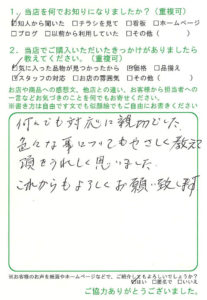 1. 当店を何でお知りになりましたか?(重複可)
☑知人から聞いた □チラシを見て □看板 □ホームページ
□ブログ □以前から利用していた □その他( )
2. 当店でご購入いただいたきっかけがありましたら
教えてください。(重複可)
☑気に入った品物が見つかったから ☑価格 □品揃え
☑スタッフの対応 □お店の雰囲気 □その他( )
お店や商品への感想文、他店との違い、お客様から担当者への
一言などお気づきのことを何でもお寄せください。
※書き方は自由です文でも似顔絵でもご自由にお書きください
何人でも対応に親切でした
色々な事についてもやさしく教えて
頂きうれしく思いました。
これからもよろしくお願い致します
※お客様のお声を紙面やホームページなどで、ご紹介してもよろしいでしょうか?
☑はい □匿名で □いいえ
ご協力ありがとうございました。